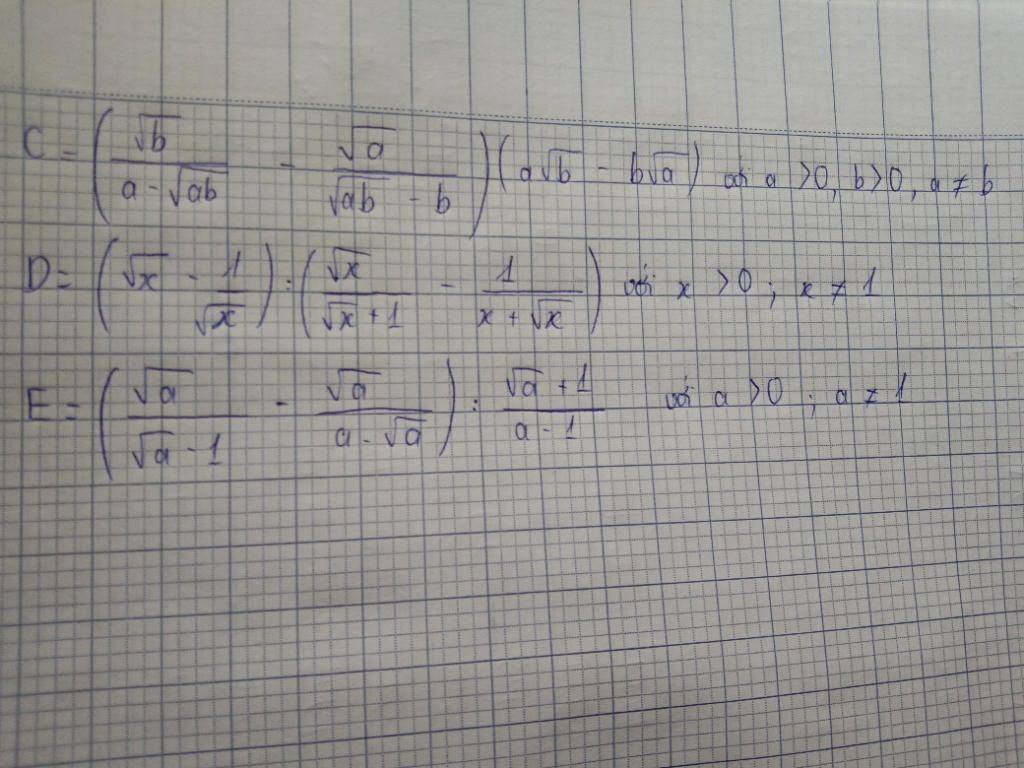 C = (√b / (a - √ab) - √a / (√ab - b)) (a√b - b√a) với a > 0, b > 0, a ≠ b
D = (√x - 1/√x) : (√x / (√x + 1) - 1 / (x + √x)) với x > 0 ; x ≠ 1
E = (√a / (√a - 1) - √a / (a - √a)) : (√a + 1) / (a - 1) với a > 0 ; a ≠ 1